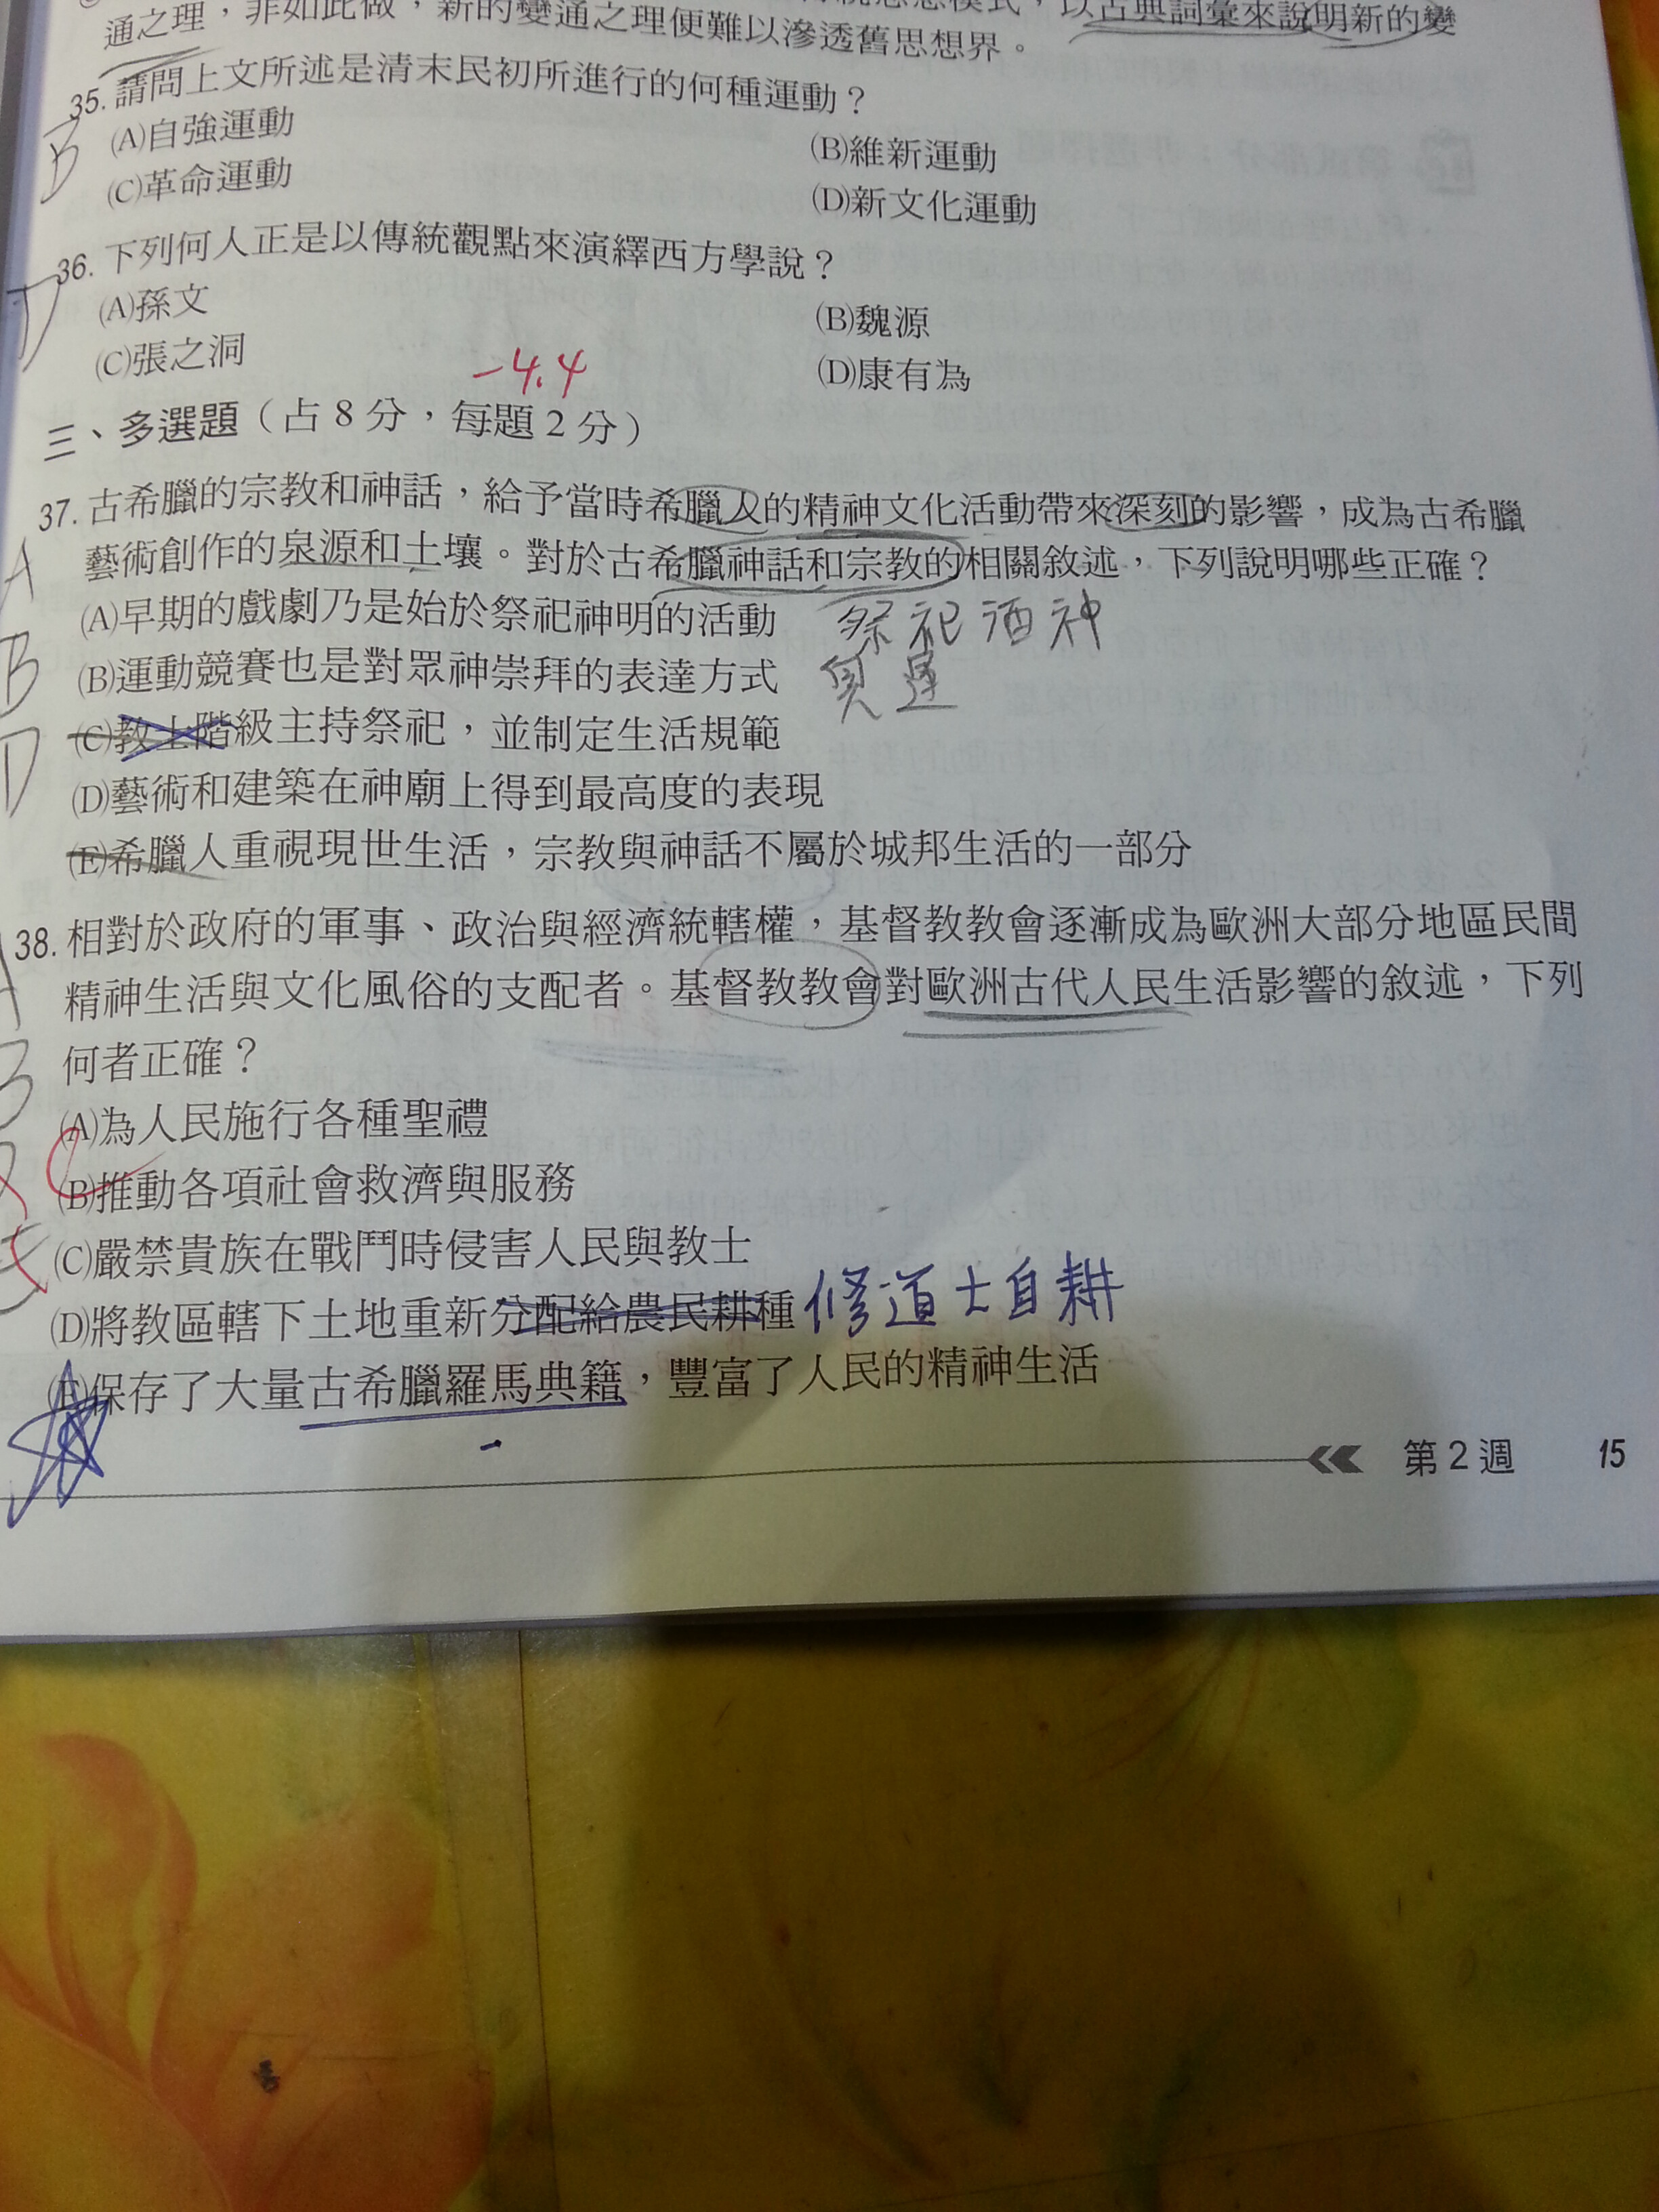 以古典詞彙來說明新的變
通之理，非如此做，新的變通之理便難以滲透舊思想界。
35. 請問上文所述是清末民初所進行的何種運動？
B
(A)自強運動
(B)維新運動
(C)革命運動
(D)新文化運動
36. 下列何人正是以傳統觀點來演繹西方學說？
D
(A)孫文
(B)魏源
(C)張之洞
(D)康有為
-4.4
三、多選題（占 8 分，每題 2 分）
37. 古希臘的宗教和神話，給予當時希臘人的精神文化活動帶來深刻的影響，成為古希臘
藝術創作的泉源和土壤。對於古希臘神話和宗教的相關敘述，下列說明哪些正確？
A
B
D
(A)早期的戲劇乃是始於祭祀神明的活動 祭祀酒神
(B)運動競賽也是對眾神崇拜的表達方式 奧運
(C)教士階級主持祭祀，並制定生活規範
(D)藝術和建築在神廟上得到最高度的表現
(E)希臘人重視現世生活，宗教與神話不屬於城邦生活的一部分
38. 相對於政府的軍事、政治與經濟統轄權，基督教教會逐漸成為歐洲大部分地區民間
精神生活與文化風俗的支配者。基督教教會對歐洲古代人民生活影響的敘述，下列
何者正確？
(A)為人民施行各種聖禮
C
(B)推動各項社會救濟與服務
(C)嚴禁貴族在戰鬥時侵害人民與教士
(D)將教區轄下土地重新分配給農民耕種 修道士自耕
(E)保存了大量古希臘羅馬典籍，豐富了人民的精神生活
第 2 週 15